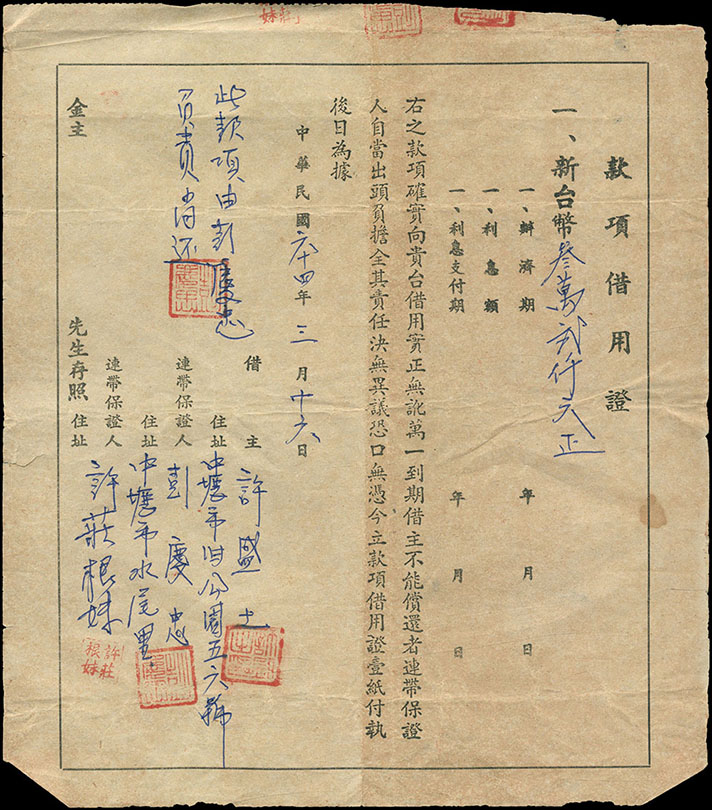 款項借用證
一、新台幣叁萬貳仟元正
一、辦濟期 年 月 日
一、利息額
一、利息支付期 年 月 日
右之款項確實向貴台借用實正無訛萬一到期借主不能償還者連帶保證
人自當出頭負擔全其責任決無異議恐口無憑今立款項借用證壹紙付執
後日為據
中華民國六十四年三月十六日
借主 許盛
住址 中壢市旧公園五六號
連帶保證人 彭慶忠
住址 中壢市水尾里
連帶保證人 許莊根妹
住址
此款項由彭慶忠
負責消还
金主 先生存照
許莊根妹
莊妹